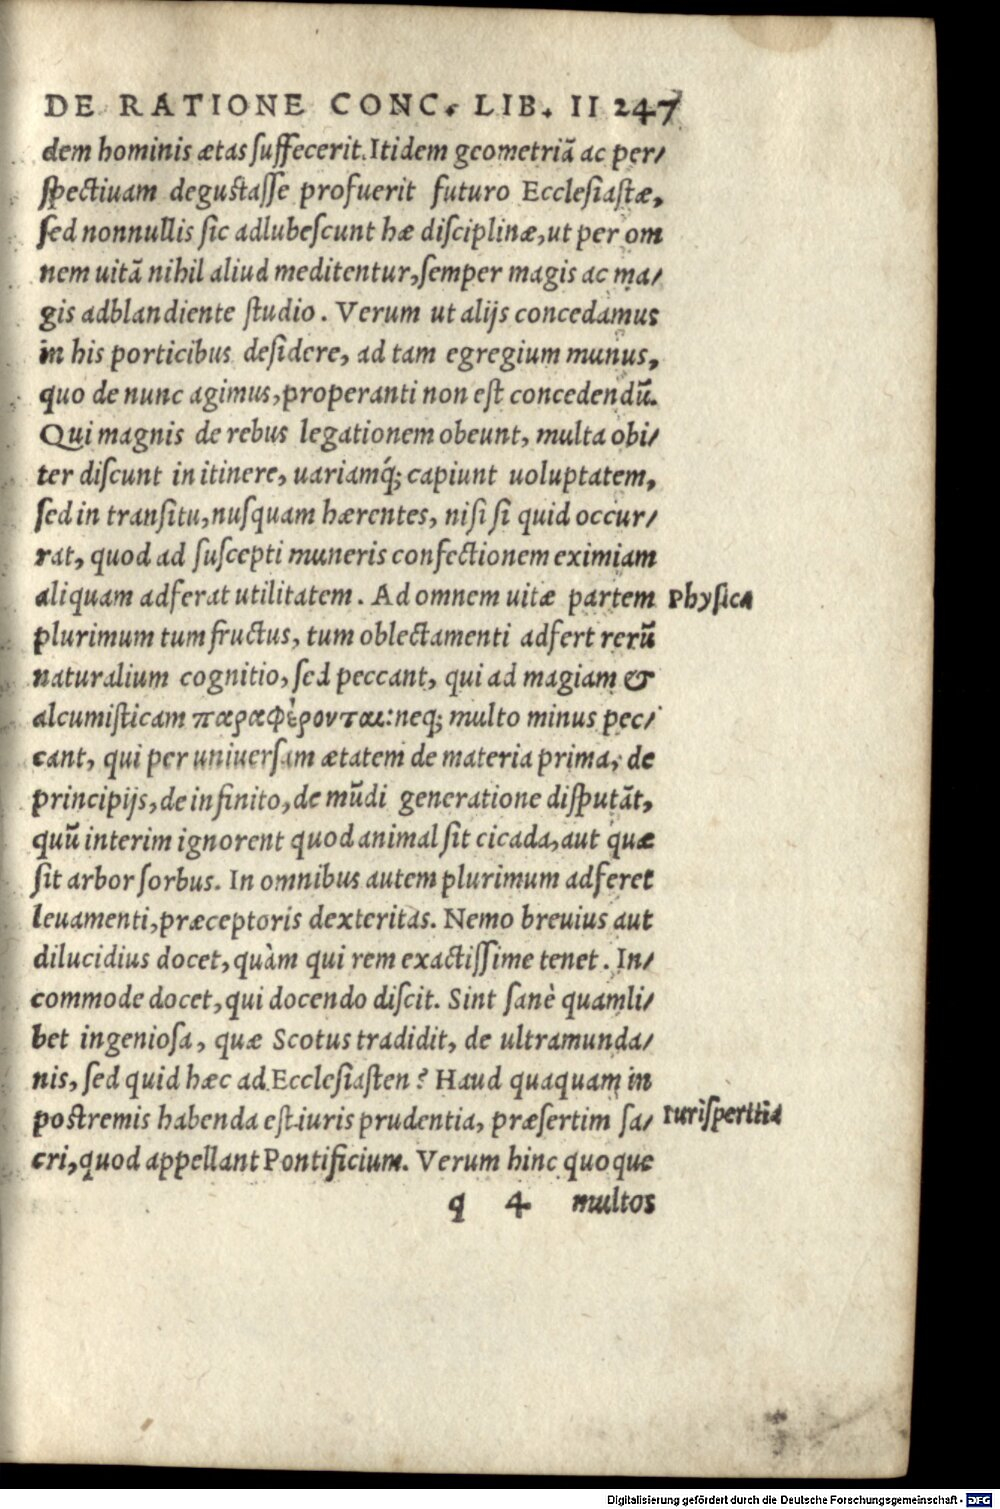 DE RATIONE CONC. LIB. II 247
dem hominis ætas suffecerit. Itidem geometriã ac per/
spectiuam degustasse profuerit futuro Ecclesiastæ,
sed nonnullis sic adlubescunt hæ disciplinæ, ut per om
nem uitã nihil aliud meditentur, semper magis ac ma/
gis adblandiente studio. Verum ut alijs concedamus
in his porticibus desidere, ad tam egregium munus,
quo de nunc agimus, properanti non est concedendũ.
Qui magnis de rebus legationem obeunt, multa obi/
ter discunt in itinere, uariamq́; capiunt uoluptatem,
sed in transitu, nusquam hærentes, nisi si quid occur/
rat, quod ad suscepti muneris confectionem eximiam
aliquam adferat utilitatem. Ad omnem uitæ partem
Physica
plurimum tum fructus, tum oblectamenti adfert rerũ
naturalium cognitio, sed peccant, qui ad magiam &
alcumisticam παραφέρονται: neq; multo minus pec/
cant, qui per uniuersam ætatem de materia prima, de
principijs, de infinito, de mũdi generatione disputãt,
quũ interim ignorent quod animal sit cicada, aut quæ
sit arbor sorbus. In omnibus autem plurimum adferet
leuamenti, præceptoris dexteritas. Nemo breuius aut
dilucidius docet, quàm qui rem exactissime tenet. In/
commode docet, qui docendo discit. Sint sanè quamli/
bet ingeniosa, quæ Scotus tradidit, de ultramunda/
nis, sed quid hæc ad Ecclesiasten? Haud quaquam in
postremis habenda est iuris prudentia, præsertim sa/
Iurisperitia
cri, quod appellant Pontificium. Verum hinc quoque
q 4 multos
Digitalisierung gefördert durch die Deutsche Forschungsgemeinschaft - DFG